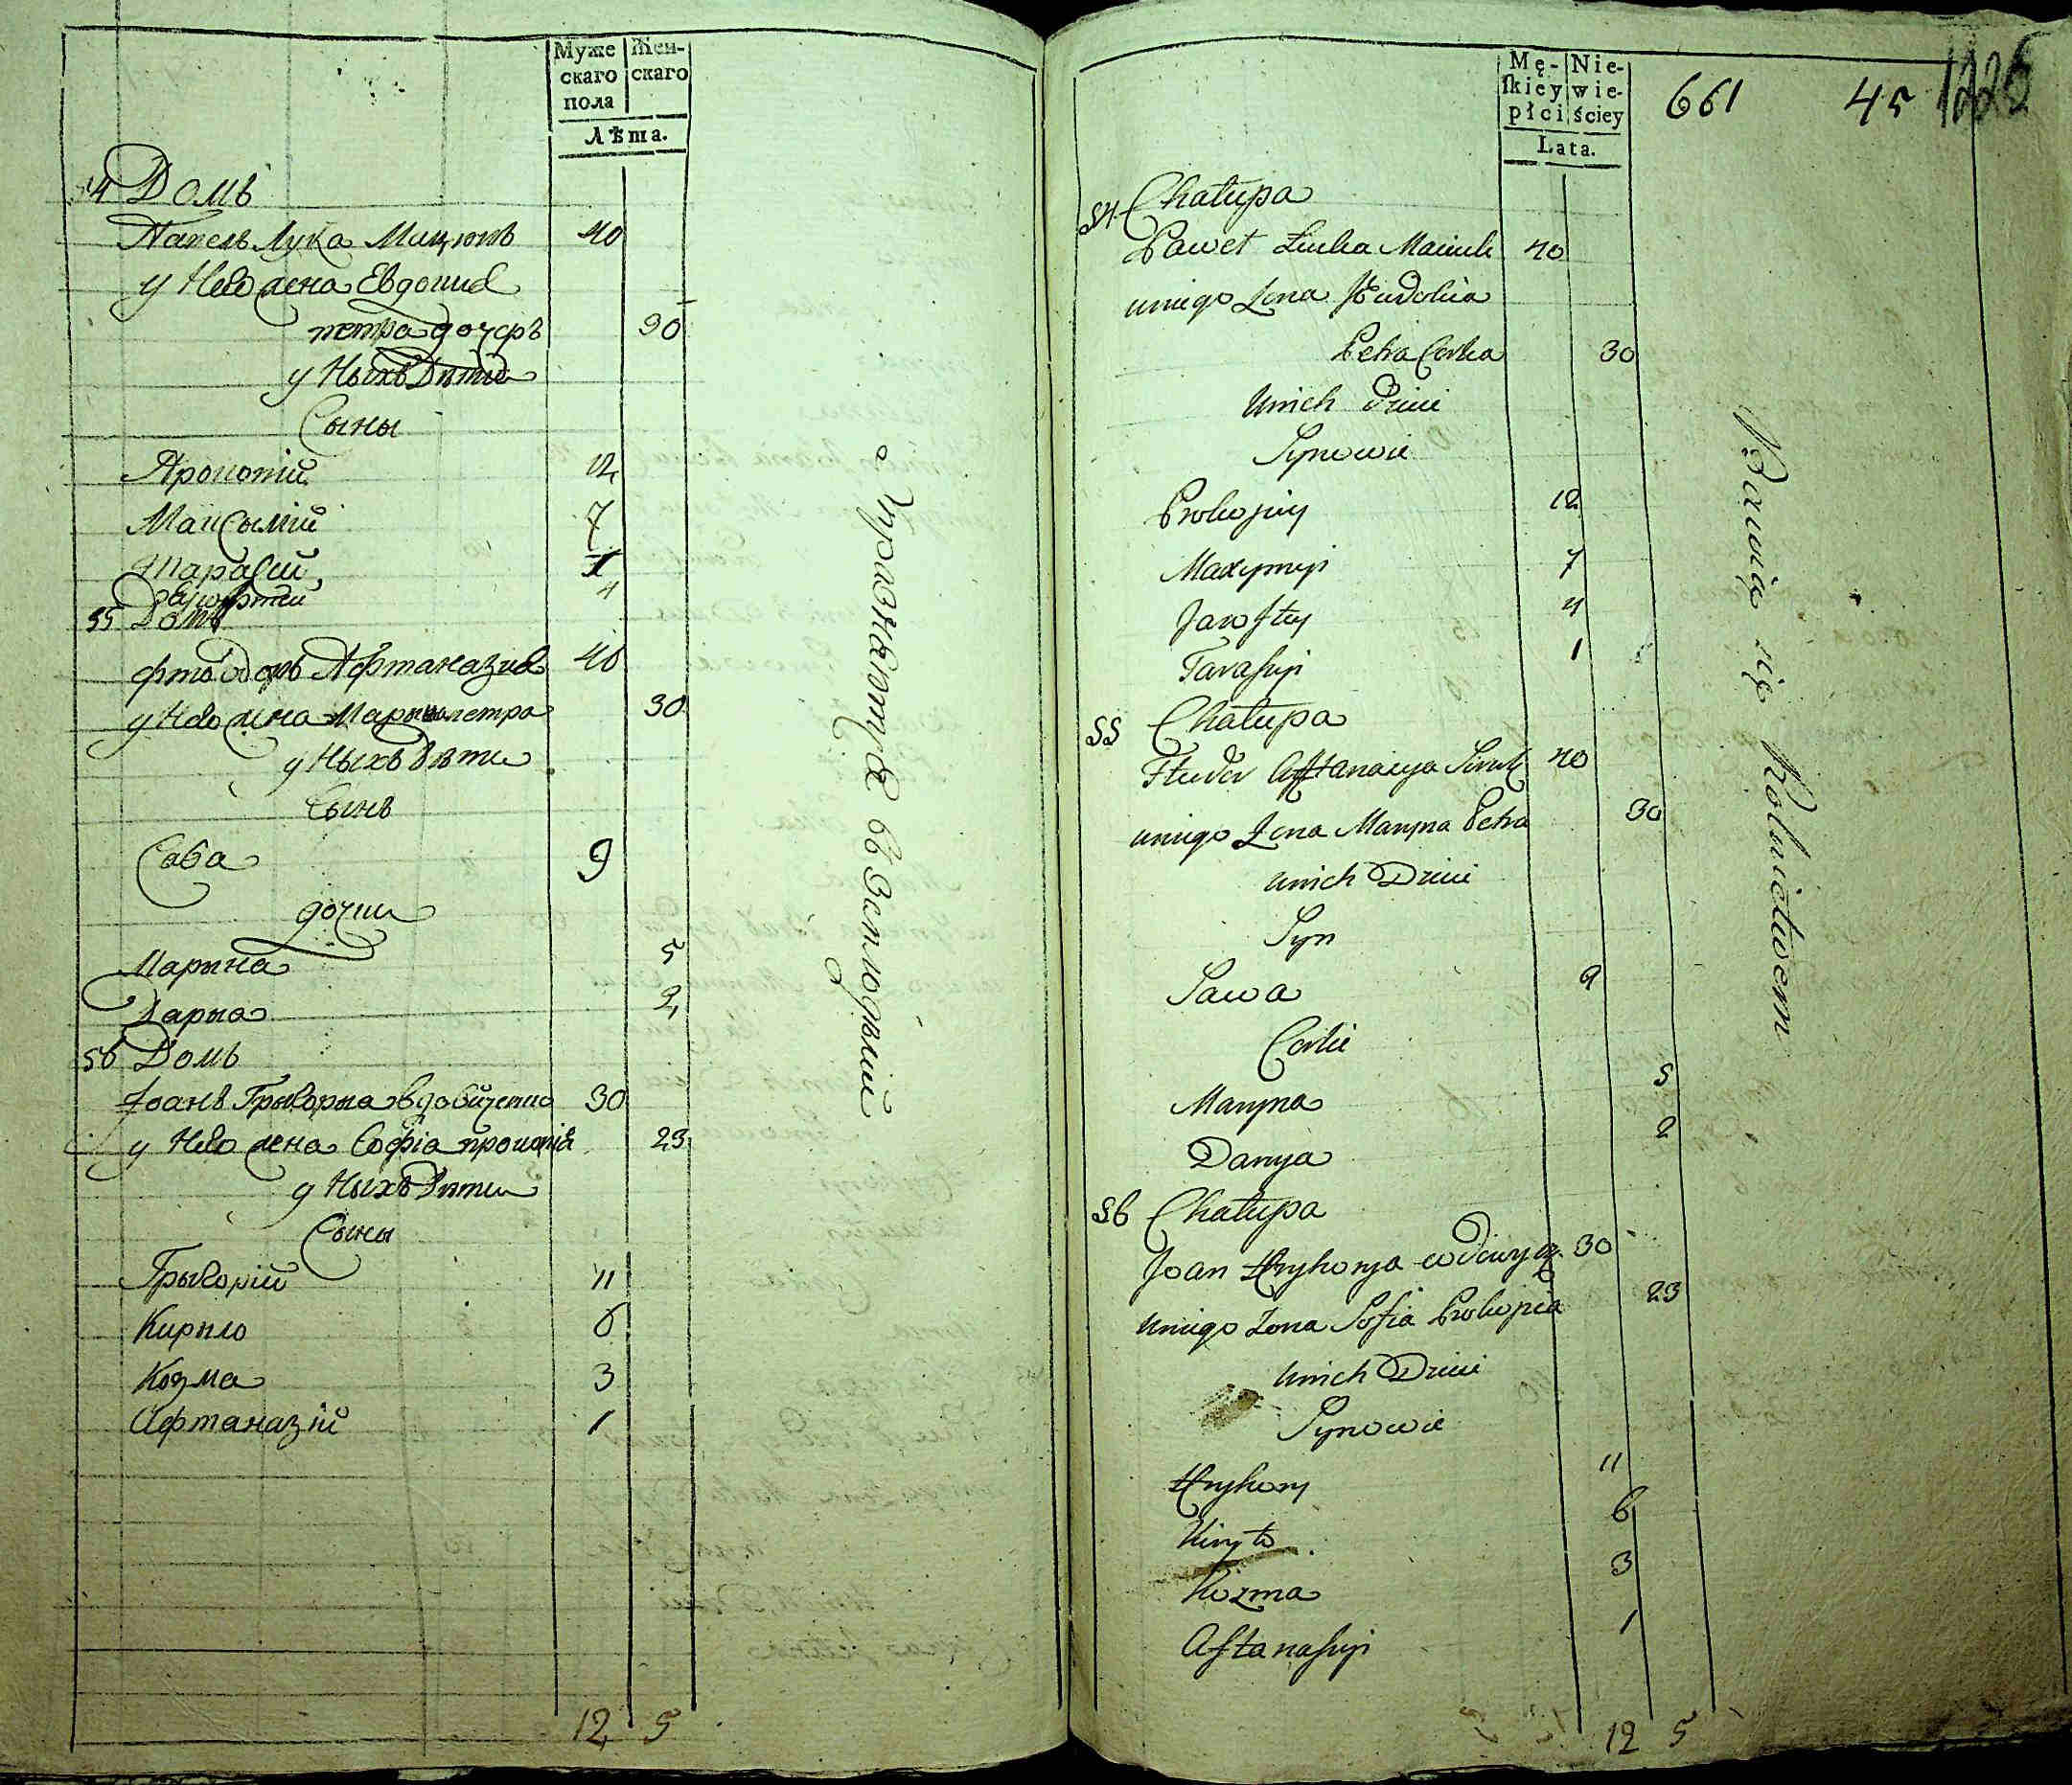 Муже
скаго
пола
Жен-
скаго
Лѣта.
54 Домъ
Павелъ Лука Мацюкъ 40
у Него жена Евдокиѧ
петра дочеръ 30
у Ныхъ Дѣти
Сыны
Прокопій 12
Максымій 7
Тарасій 1
4
55 Домъ
Фтодоръ Афтаназиѧ 40
у Него жена Марына петра 30
у Ныхъ Дѣти
Сынъ
Сава 9
дочки
Марына 5
Дарыа 2
56 Домъ
Іоанъ Грыгорыа вдовиченко 30
у Него жена Софіа прокопіа 23
у Ныхъ Дѣти
Сыны
Грыгорій 11
Кирыло 6
Козма 3
Афтаназій 1
12 5
Упражнѧютсѧ въ Земледѣлий
Mę-
skiey
płci
Nie-
wie-
ściey
Lata.
661 45 1226
54 Chałupa
Paweł Łuka Maciuk 40
uniego Zona Jeudokia
Petra Corka 30
unich Dzieci
Synowie
Prokopiy 12
Maxymiji 7
Jawstiy 4
Tarasiji 1
55 Chałupa
Fteudor Afftanazya 40
uniego Zona Maryna Petra 30
unich Dzieci
Syn
Sawa 9
Corki
Maryna 5
Darya 2
56 Chałupa
Joan Hryhorya wdowycz. 30
uniego Zona Sofia Prokopia 23
unich Dzieci
Synowie
Hryhory 11
Kiryło 6
Kozma 3
Aftanasiji 1
12 5
Bawią się Rolnictwem